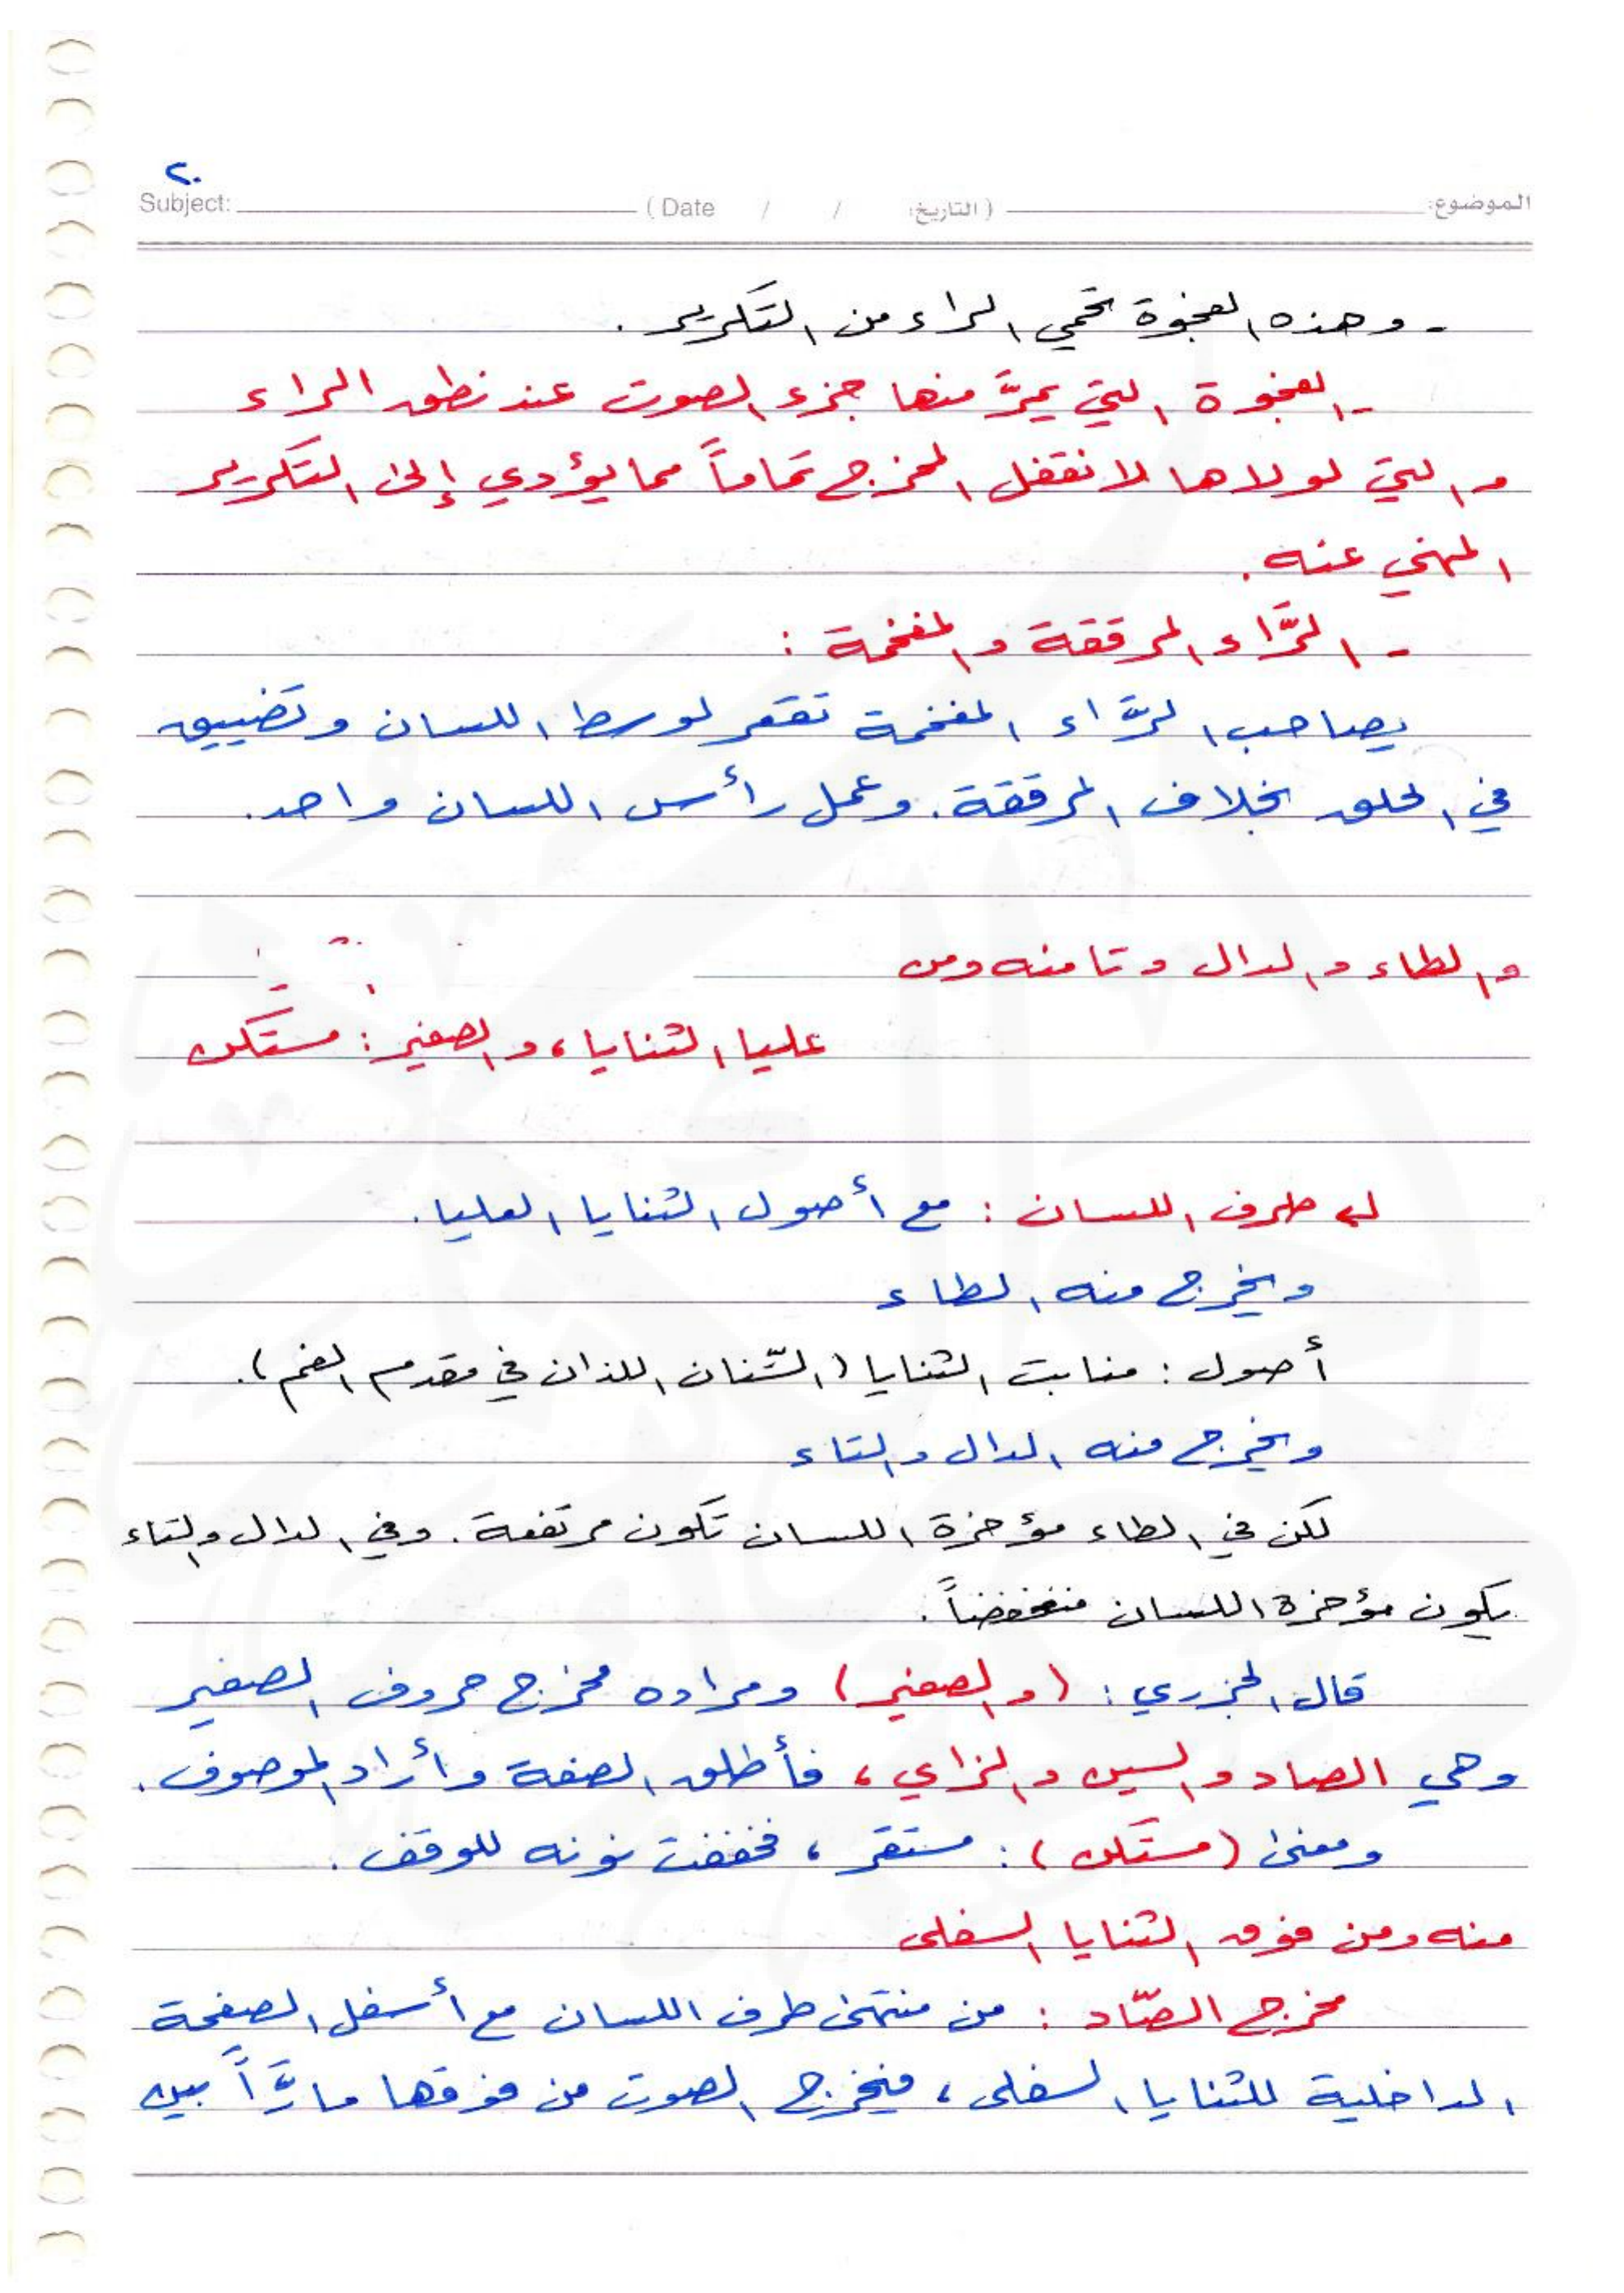 ٢٠
الموضوع: (التاريخ: / / Date ) Subject:
- وهذه الفجوة تحمي الراء من التكرير.
- الفجوة التي يمرّ منها جزء الصوت عند نطق الراء
والتي لولاها لانقفل المخرج تماماً مما يؤدي إلى التكرير
المنهي عنه.
- الرَّاء المرققة والمفخمة :
يصاحب الرَّاء المفخمة تقعر لوسط اللسان وتضييق
في الحلق بخلاف المرققة. وعمل رأس اللسان واحد.
والطاء والدال وتا منه ومن
عليا الثنايا، والصفير: مستكن
طرف اللسان : مع أصول الثنايا العليا.
ويخرج منه الطاء
أصول : منابت الثنايا (السّنان اللذان في مقدم الفم).
ويخرج منه الدال والتاء
لكن في الطاء مؤخرة اللسان تكون مرتفعة. وفي الدال والتاء
يكون مؤخرة اللسان منخفضاً.
قال الجزري: (والصفير) ومراده مخرج حروف الصفير
وهي الصاد والسين والزاي، فأطلق الصفة وأراد الموصوف.
ومعنى (مستكن): مستقر، فخففت نونه للوقف.
منه ومن فوق الثنايا السفلى
مخرج الصّاد : من منتهى طرف اللسان مع أسفل الصفحة
الداخلية للثنايا السفلى، فيخرج الصوت من فوقها مارّاً بين